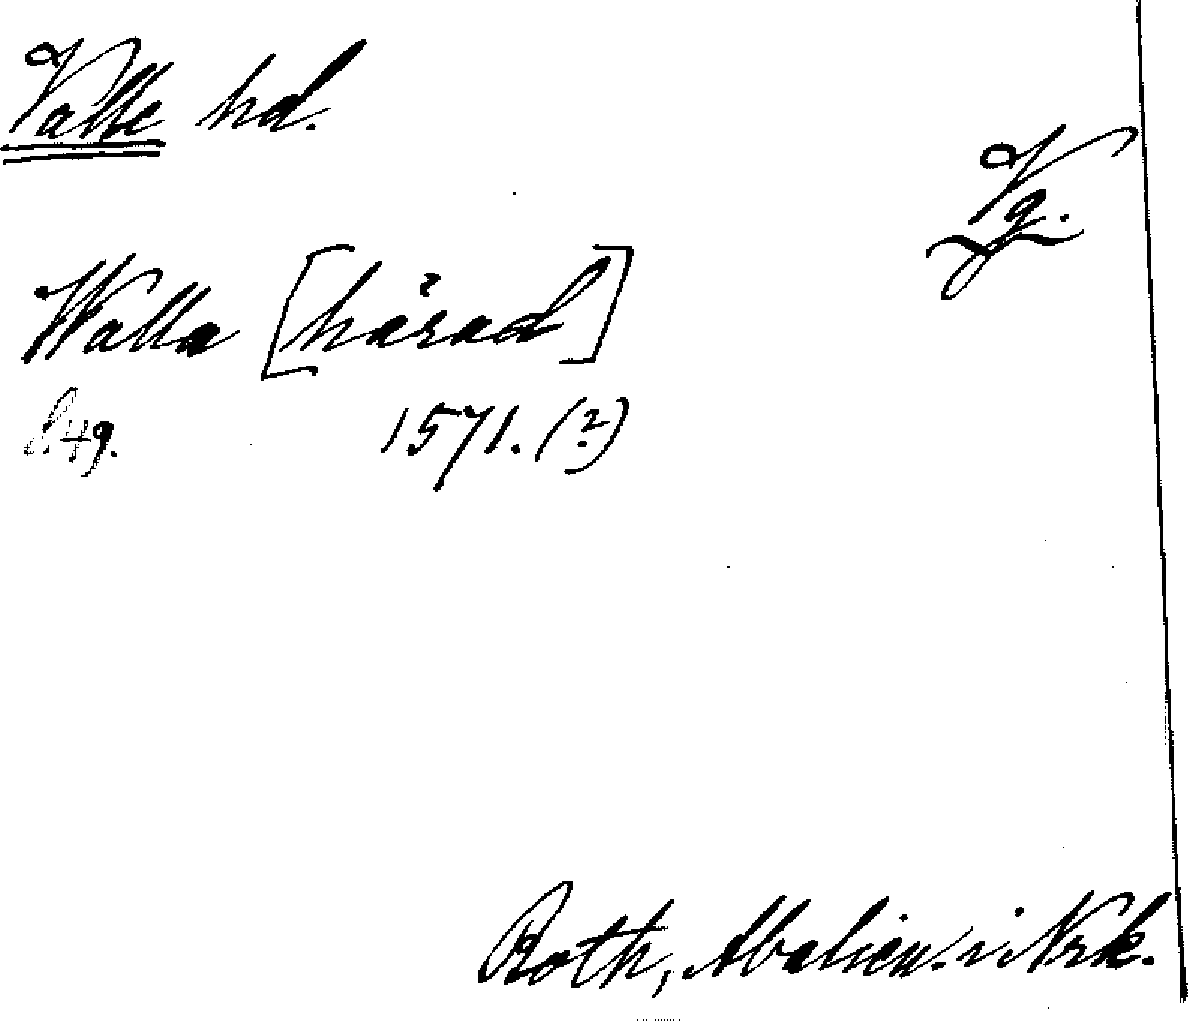 Valle hd.
Vg.
Walla [härad]
s. 49. 1571. (?)
Roth, Abalien. i Nrk.